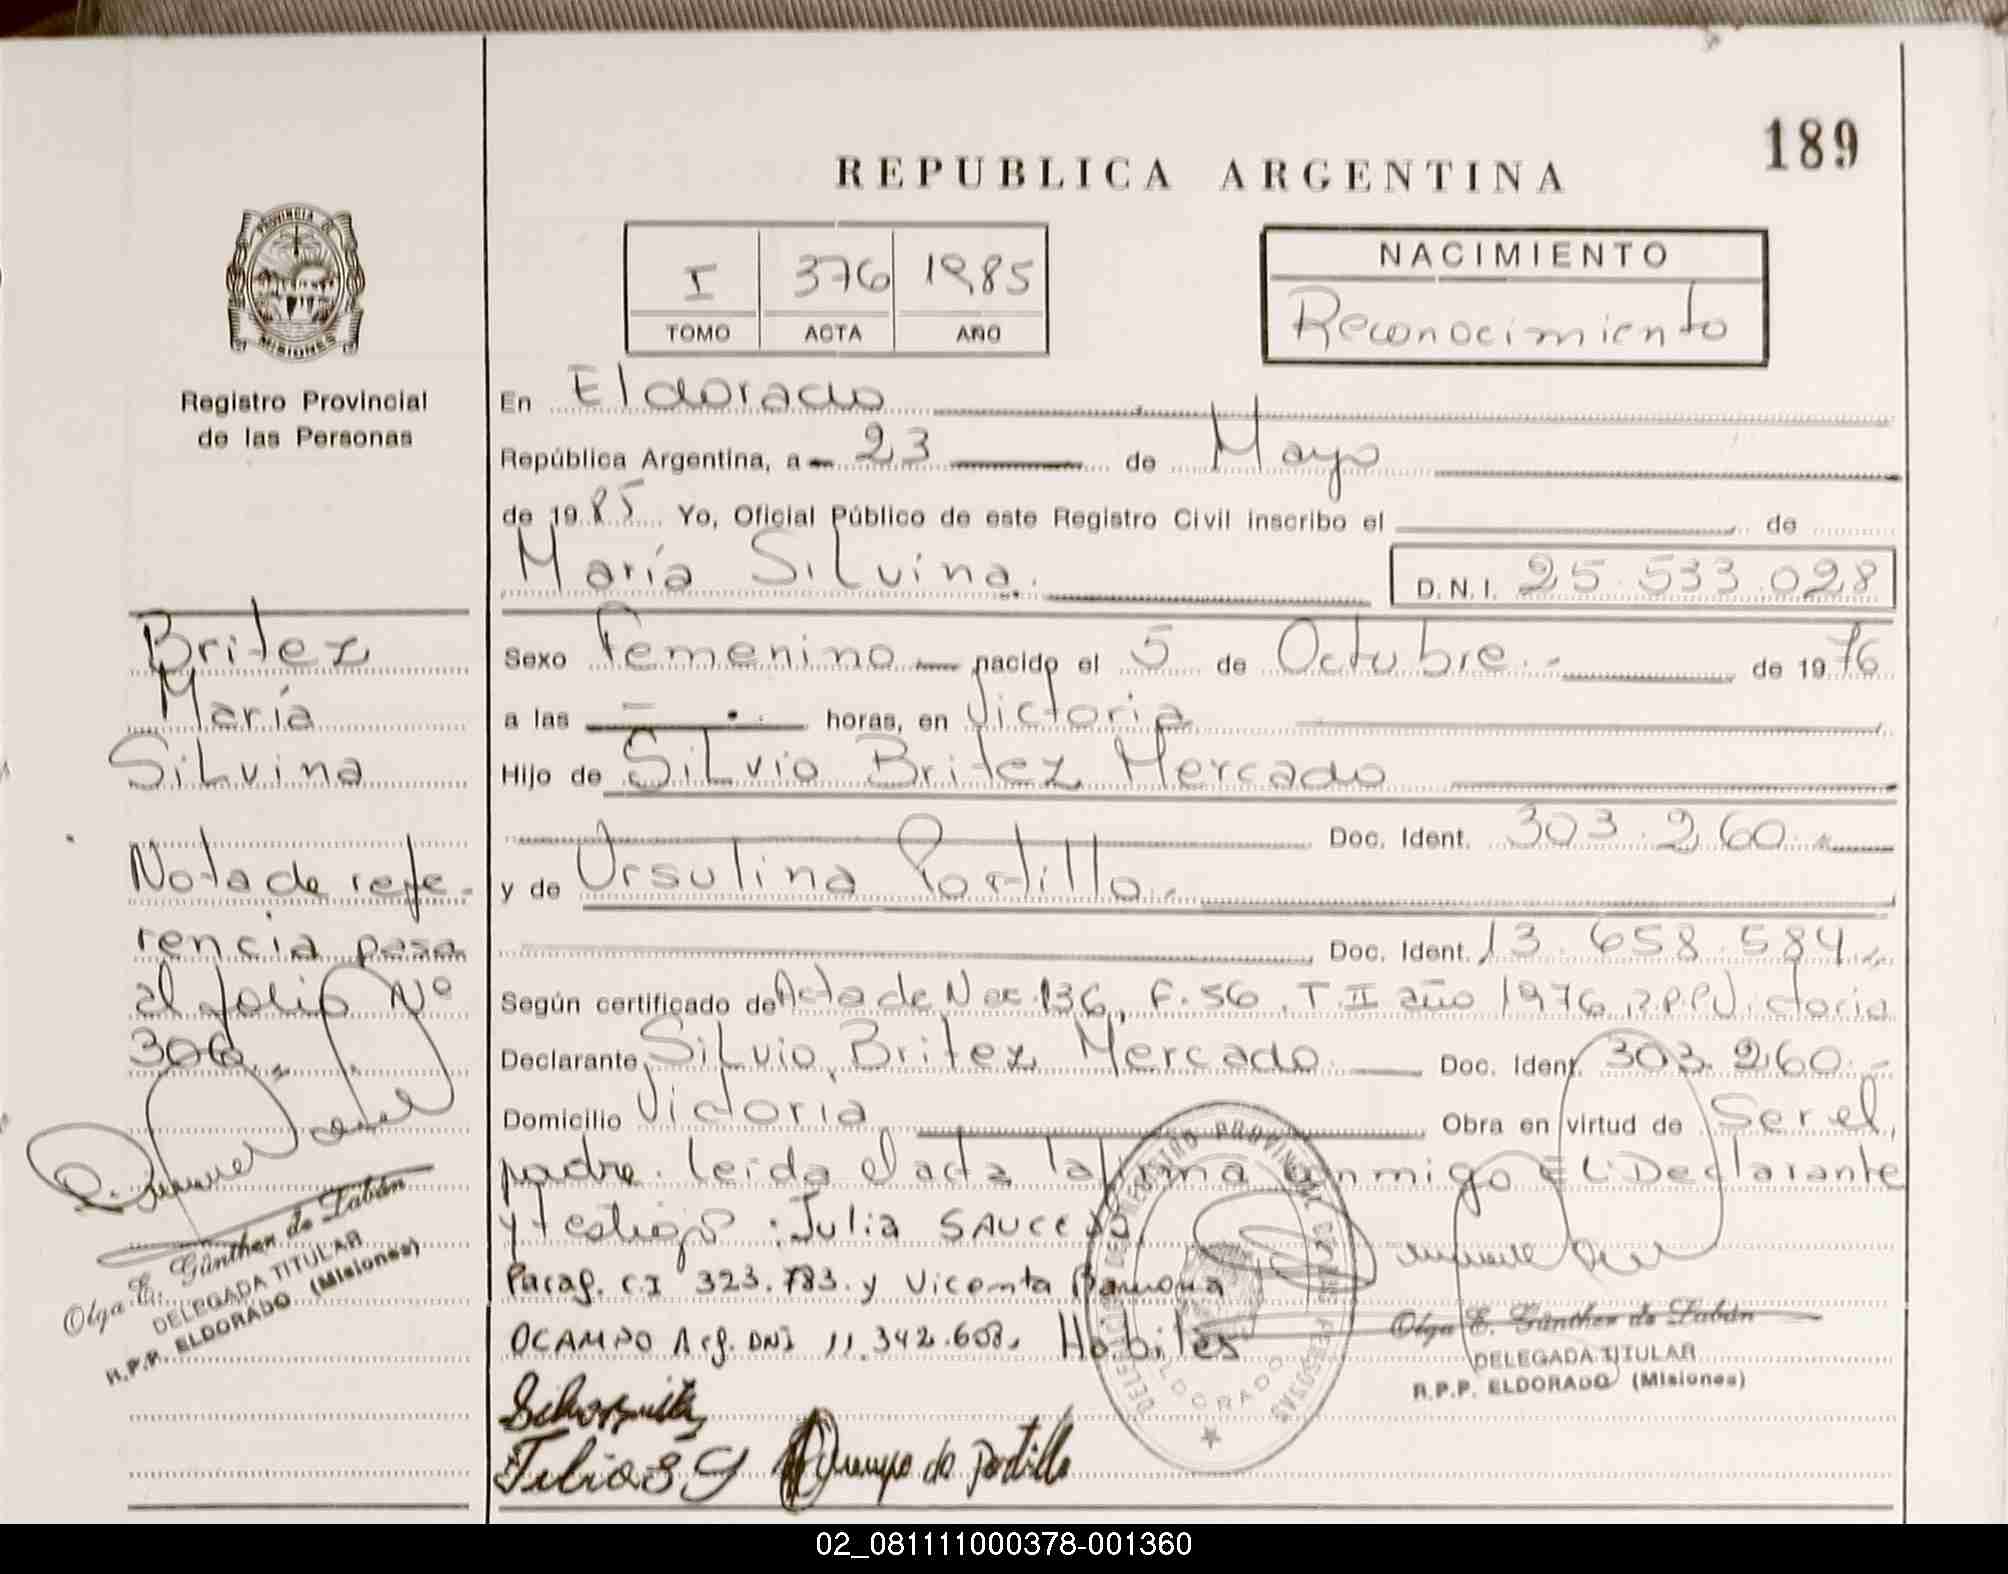 189
REPUBLICA ARGENTINA
PROVINCIA DE
MISIONES
Registro Provincial
de las Personas
I 376 1985
TOMO ACTA AÑO
NACIMIENTO
Reconocimiento
En Eldorado
República Argentina, a 23 de Mayo
de 1985 Yo, Oficial Público de este Registro Civil inscribo el de
María Silvina. D.N.I. 25.533.028
Sexo Femenino nacido el 5 de Octubre.- de 1976
a las horas, en Victoria
Hijo de Silvio Britez Mercado
Doc. Ident. 303.260
y de Ursulina Portillo.-
Doc. Ident. 13.658.584
Según certificado de Acta de Nac. 136, F. 56. T. II año 1976, R.P.P. Victoria
Declarante Silvio Britez Mercado Doc. Ident. 303.260.-
Domicilio Victoria Obra en virtud de Ser el
padre. leida el acta la firma conmigo El Declarante
y testigos: Julia SAUCEDO
Parag. C.I 323.783. y Vicenta Ramona
OCAMPO Arg. DNI 11.342.608. Habiles
Britez
María
Silvina
Nota de refe-
rencia pasa
al folio Nº
306.-
Olga E. Günther de Zabán
DELEGADA TITULAR
R.P.P. ELDORADO (Misiones)
REGISTRO PROVINCIAL DE LAS PERSONAS
ELDORADO
Olga E. Günther de Zabán
DELEGADA TITULAR
R.P.P. ELDORADO (Misiones)
de Portillo
02_081111000378-001360